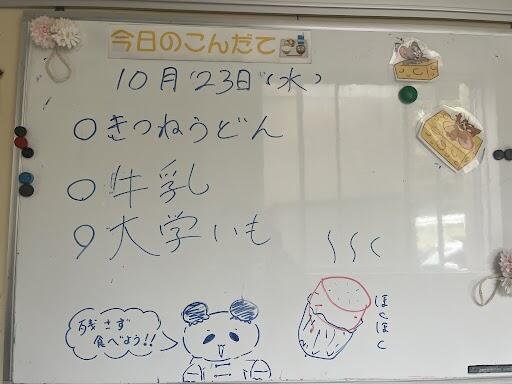 今日のこんだて
10月23日(水)
○きつねうどん
○牛乳
○大学いも
残さず
食べよう!!
ほくほく